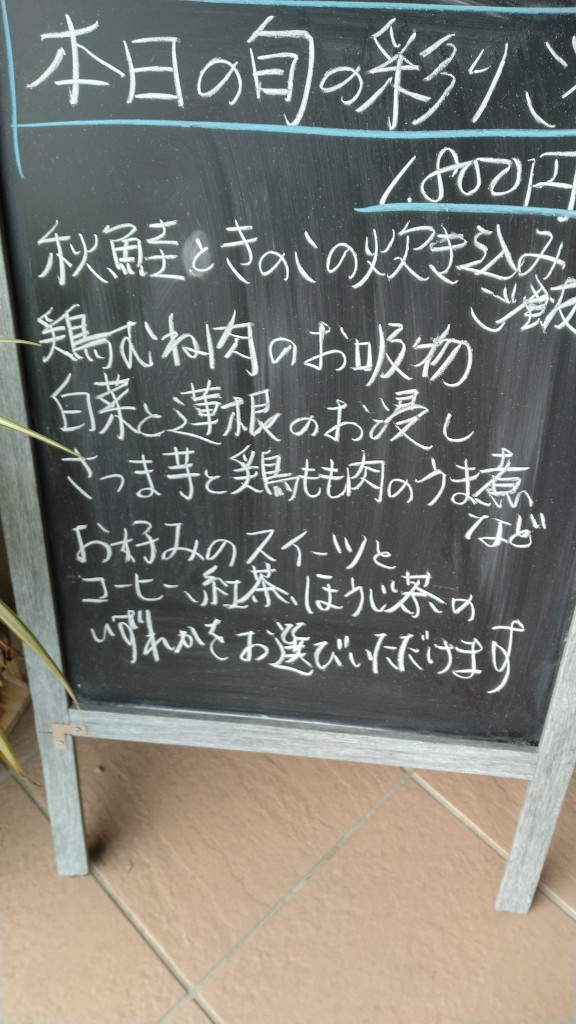 本日の旬の彩りご
1.800円
秋鮭ときのこの炊き込み
ご飯
鶏むね肉のお吸物
白菜と蓮根のお浸し
さつま芋と鶏もも肉のうま煮
など
お好みのスイーツと
コーヒー、紅茶、ほうじ茶の
いずれかをお選びいただけます